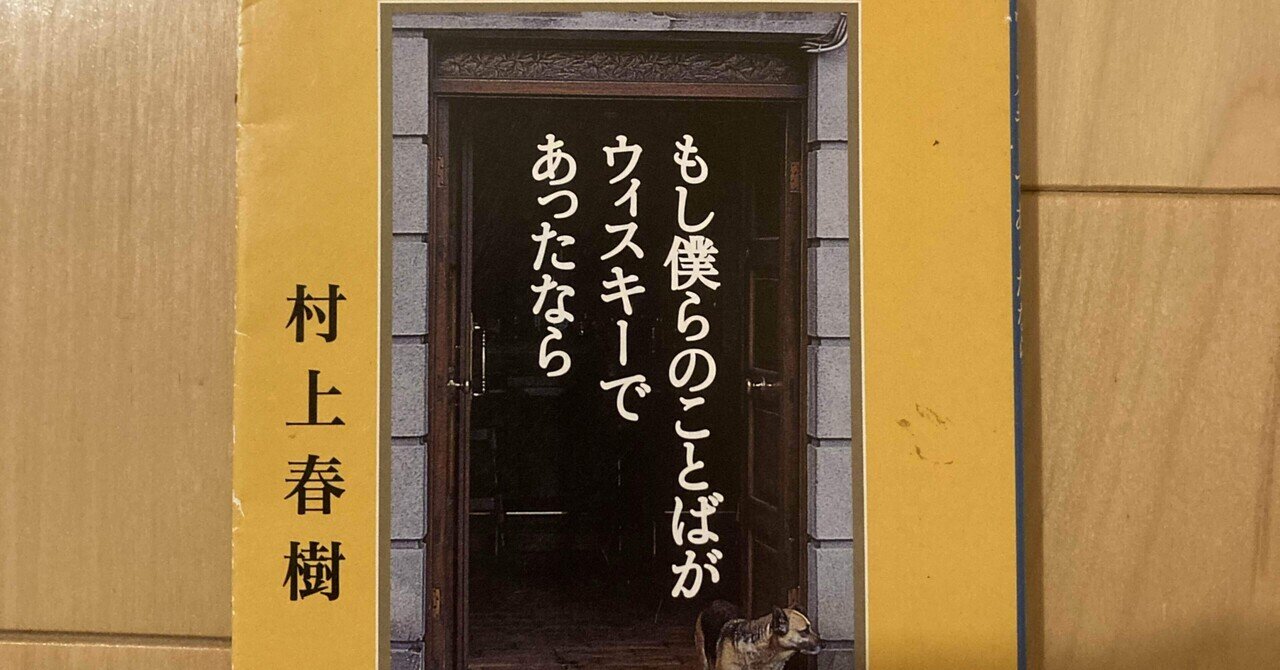 もし僕らのことばが
ウィスキーで
あったなら
村上春樹